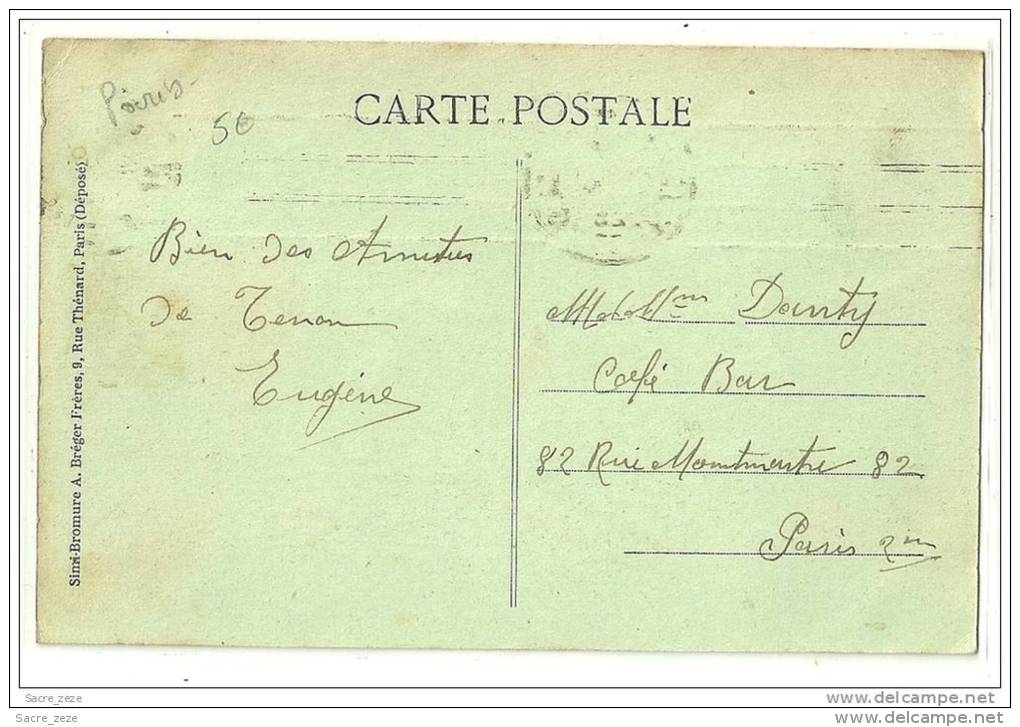 Paris
50
CARTE POSTALE
Simi-Bromure A. Bréger Frères, 9, Rue Thénard, Paris (Déposé)
Bien des Amitiés
de Tenon
Eugène
M et Mme Danty
Café Bar
82 Rue Montmartre 82
Paris 2me
Sacre_zeze
www.delcampe.net
Sacre_zeze
www.delcampe.net